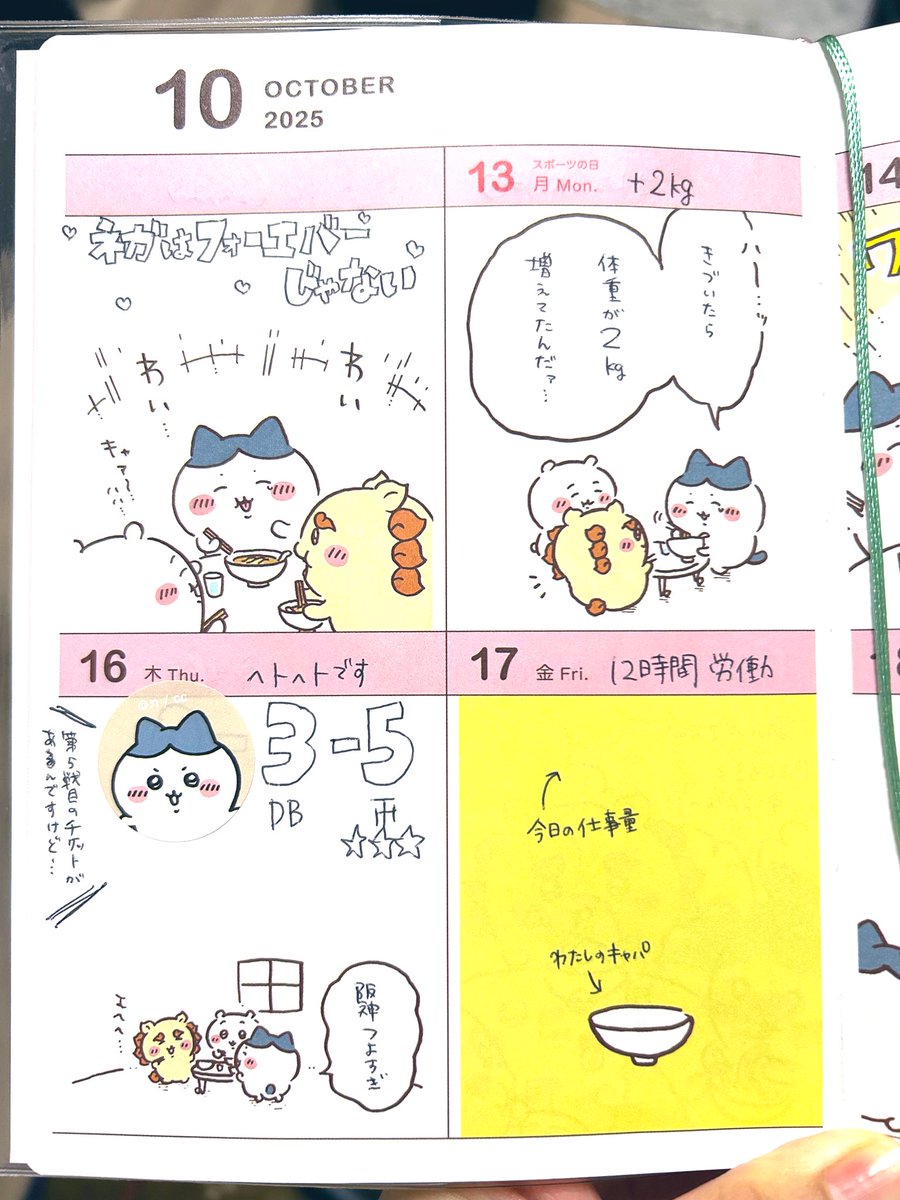 10
OCTOBER
2025
ネガはフォーエバー
じゃない
わい…
わい
キャァ〜…
13
スポーツの日
月 Mon.
+2kg
ハー…ッ
きづいたら
体重が2kg
増えてたんだァ…
14
16
木 Thu.
ヘトヘトです
第5戦目のチケットが
あるんですけど…
3-5
DB
阪神つよすぎ
17
金 Fri.
12時間労働
今日の仕事量
わたしのキャパ